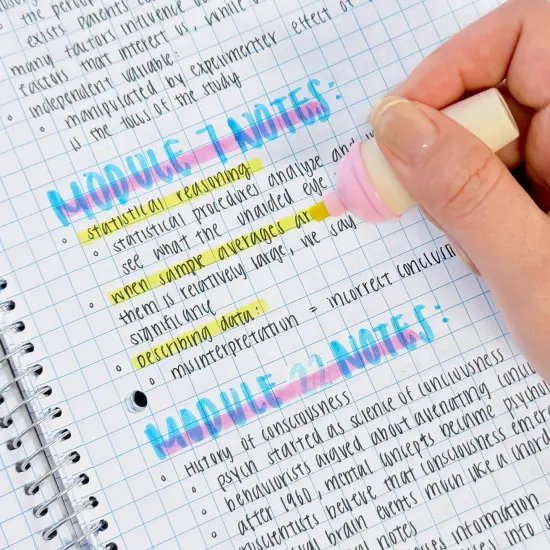 the percep
exists parents co
many factors influence
factors that interest us, while
independent variable:
manipulated by experimenter effect of
is the focus of the study
MODULE 7 NOTES:
statistical reasoning:
statistical procedures analyze and
see what the unaided eye
when sample averages ar
them is relatively large, we say
significance
Describing data:
misinterpretation = incorrect conclusi
MODULE 22 NOTES:
History of consciousness
psych started as science of conciousness
behaviorists argued about alienating conci
after 1960, mental concepts became psycho
scientists believe that consciousness emer
brain events much like a chord
notes
information